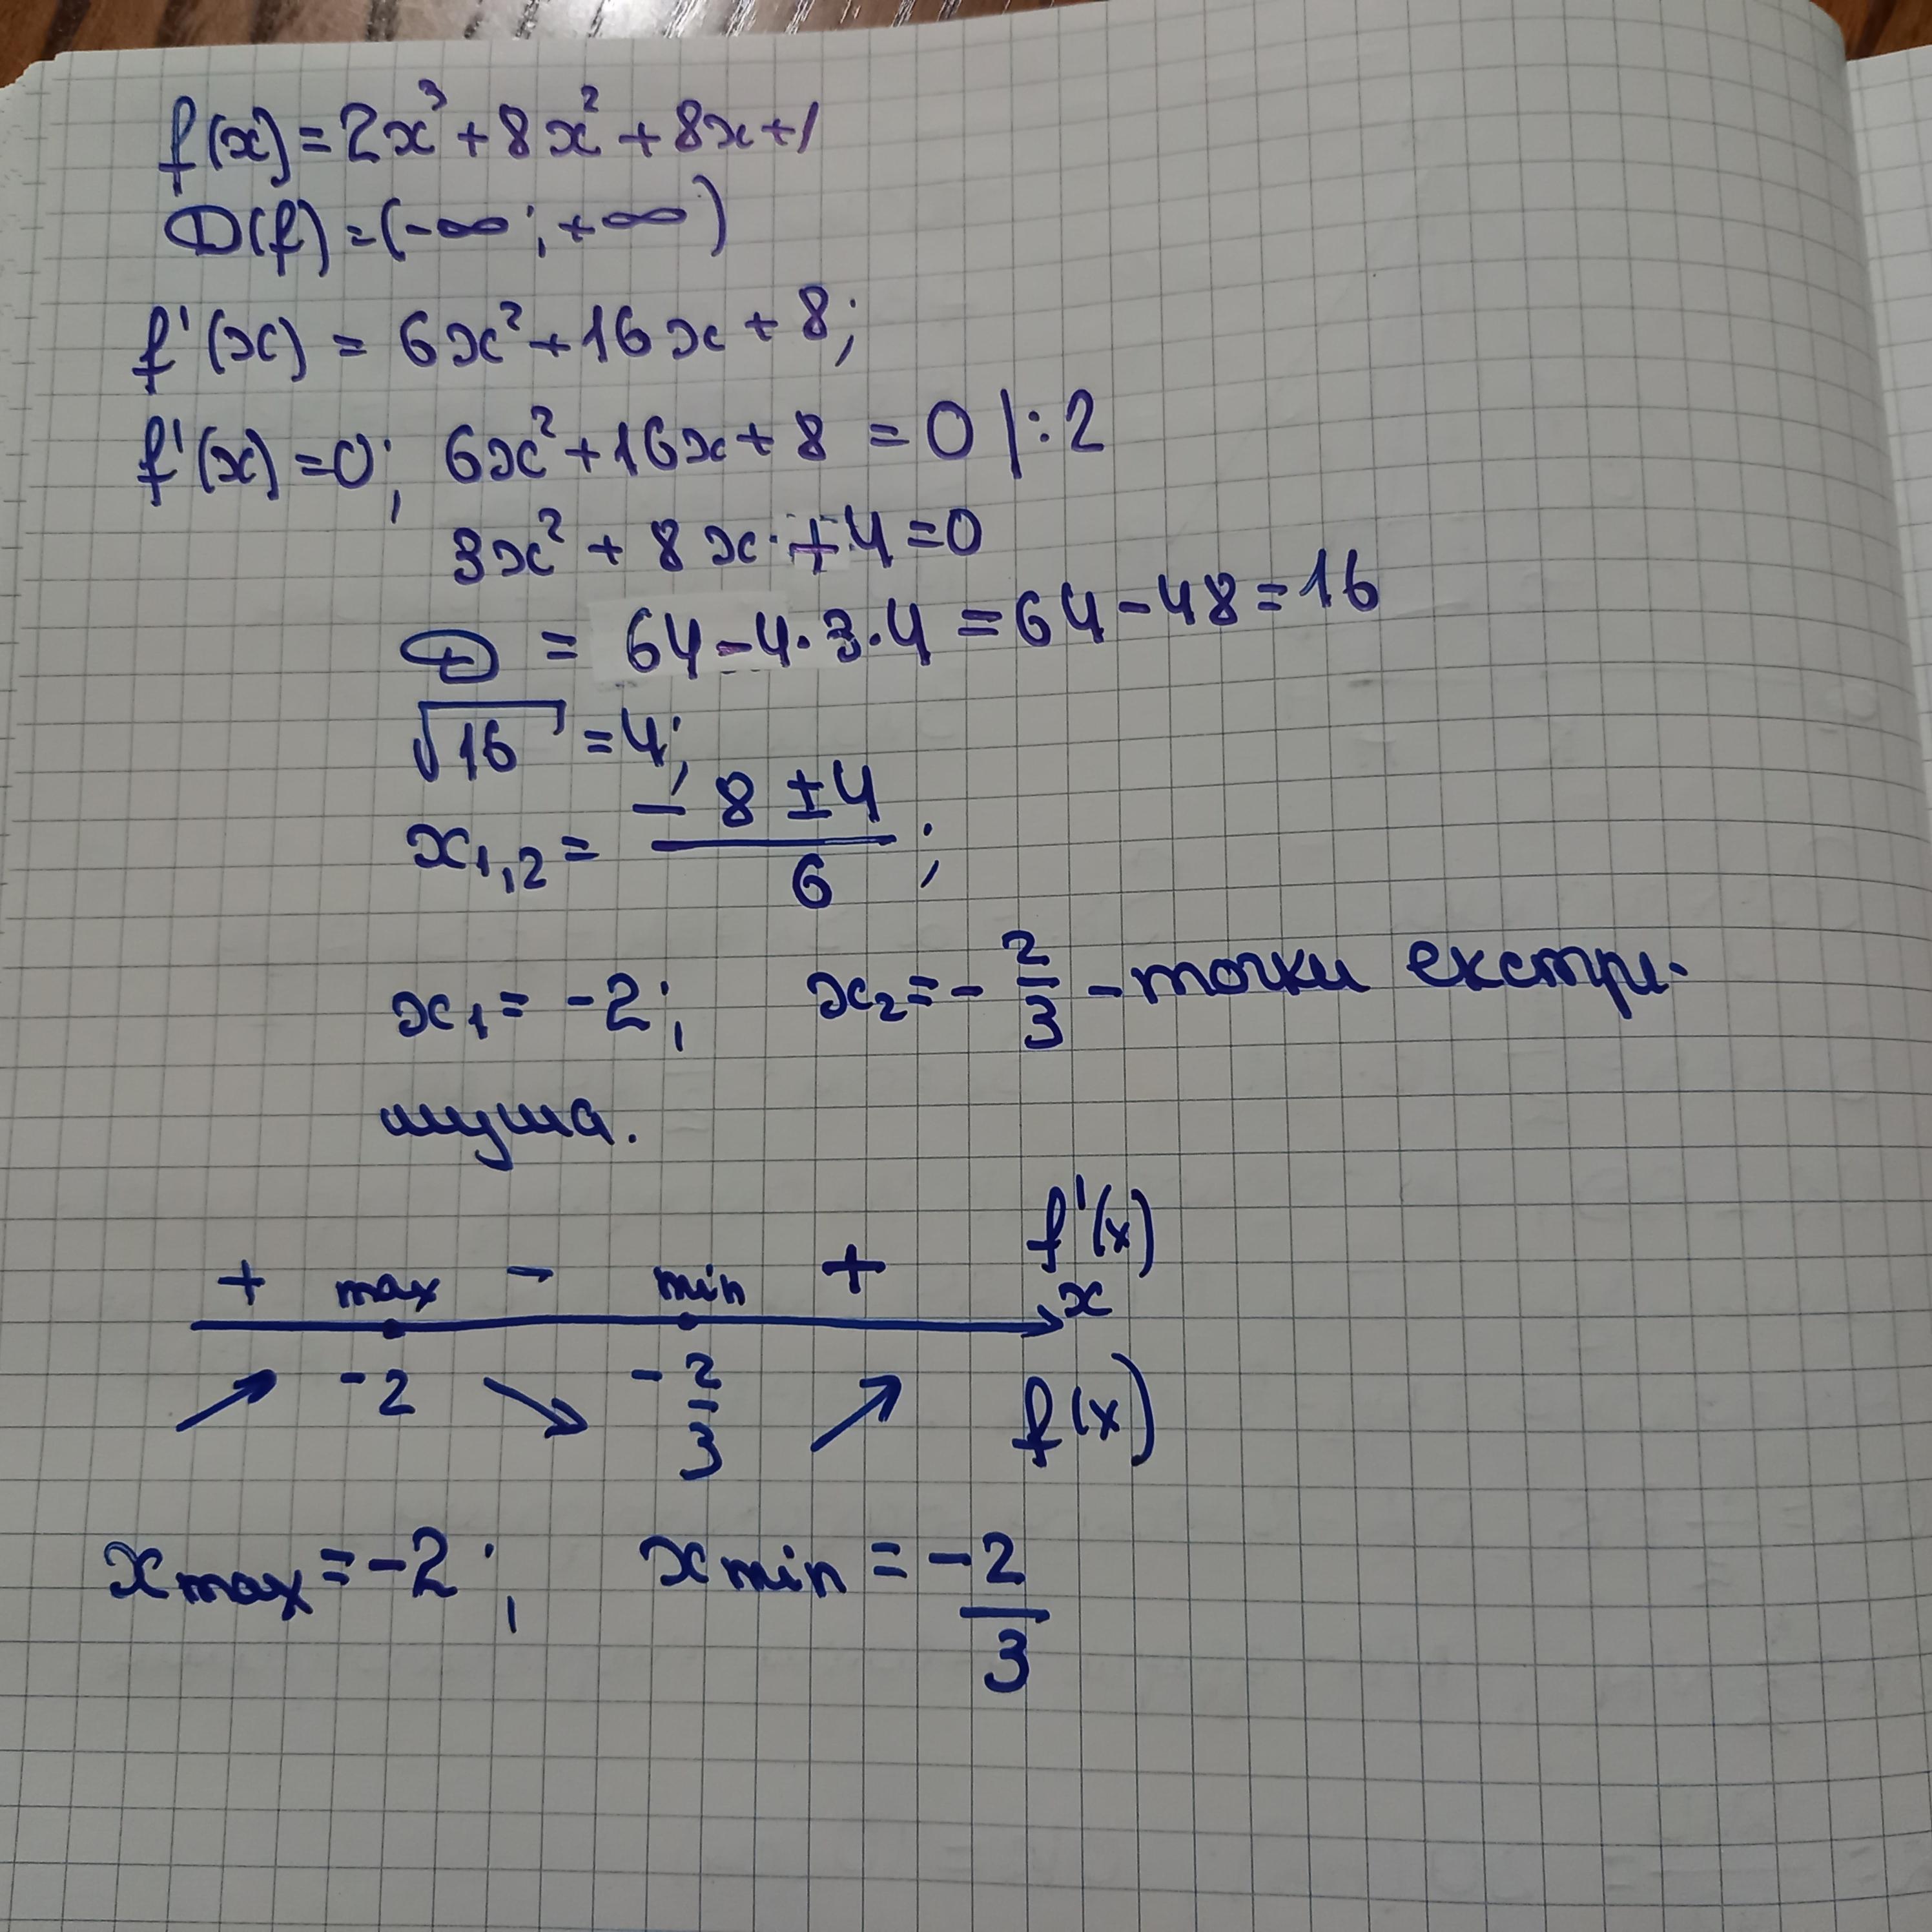 f(x)=2x³+8x²+8x+1
D(f)=(-∞;+∞)
f'(x)=6x²+16x+8;
f'(x)=0; 6x²+16x+8=0 |:2
3x²+8x+4=0
D=64-4·3·4=64-48=16
√16=4;
x₁,₂=(-8±4)/6;
x₁=-2; x₂=-2/3-точки екстри-
мума.
+ max - min + f'(x)
x
-2 -2/3 f(x)
xmax=-2; xmin=-2/3